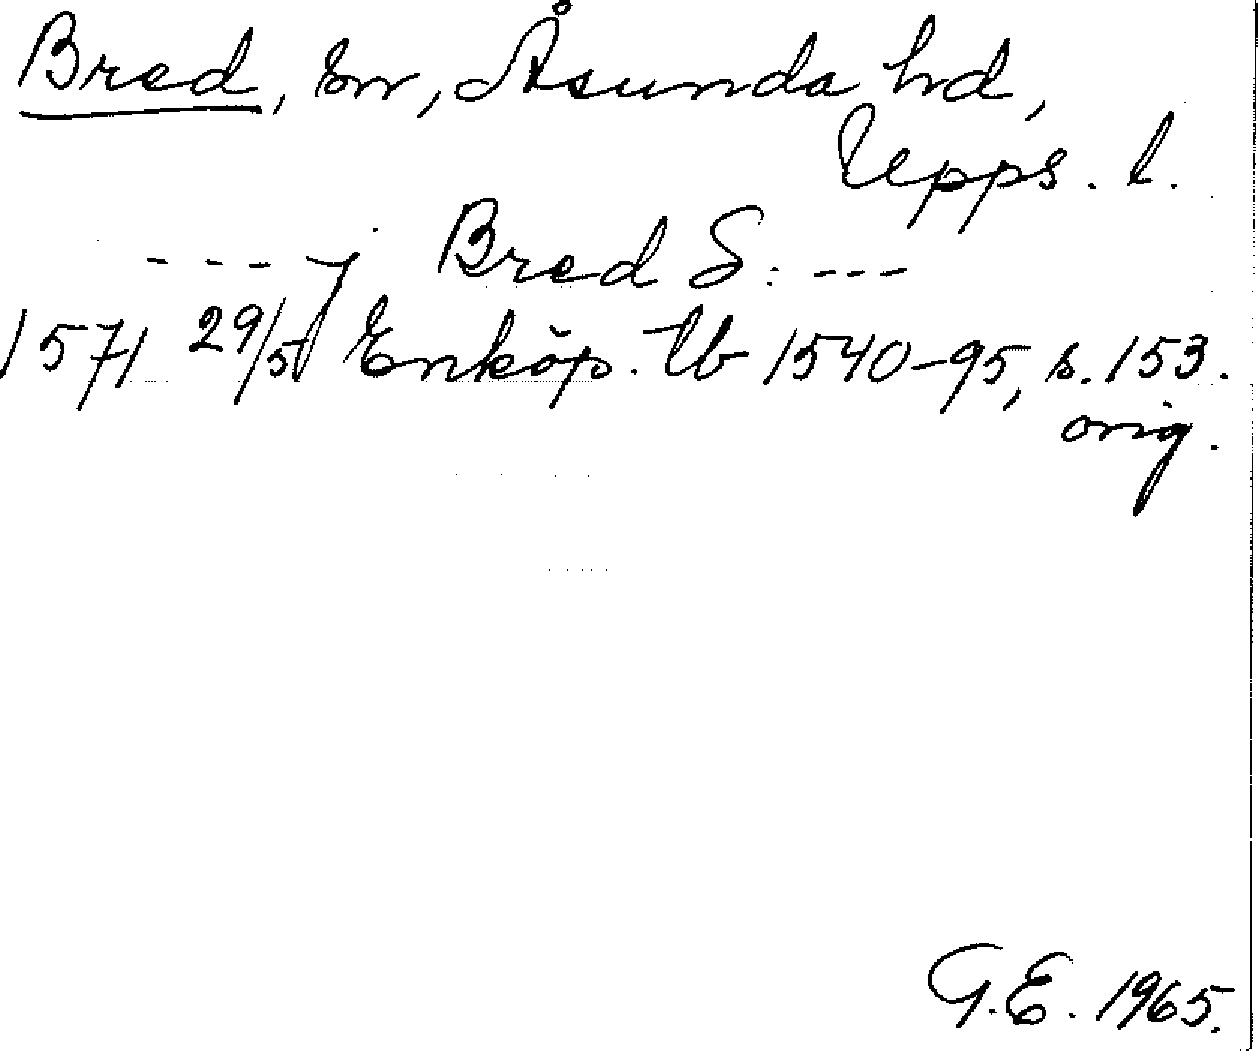 Bred, sn, Åsunda hd,
Upps. l.
- - - J Bred S: - - -
1571 29/5 Enköp. tb 1540-95, s. 153.
orig.
G.E. 1965.